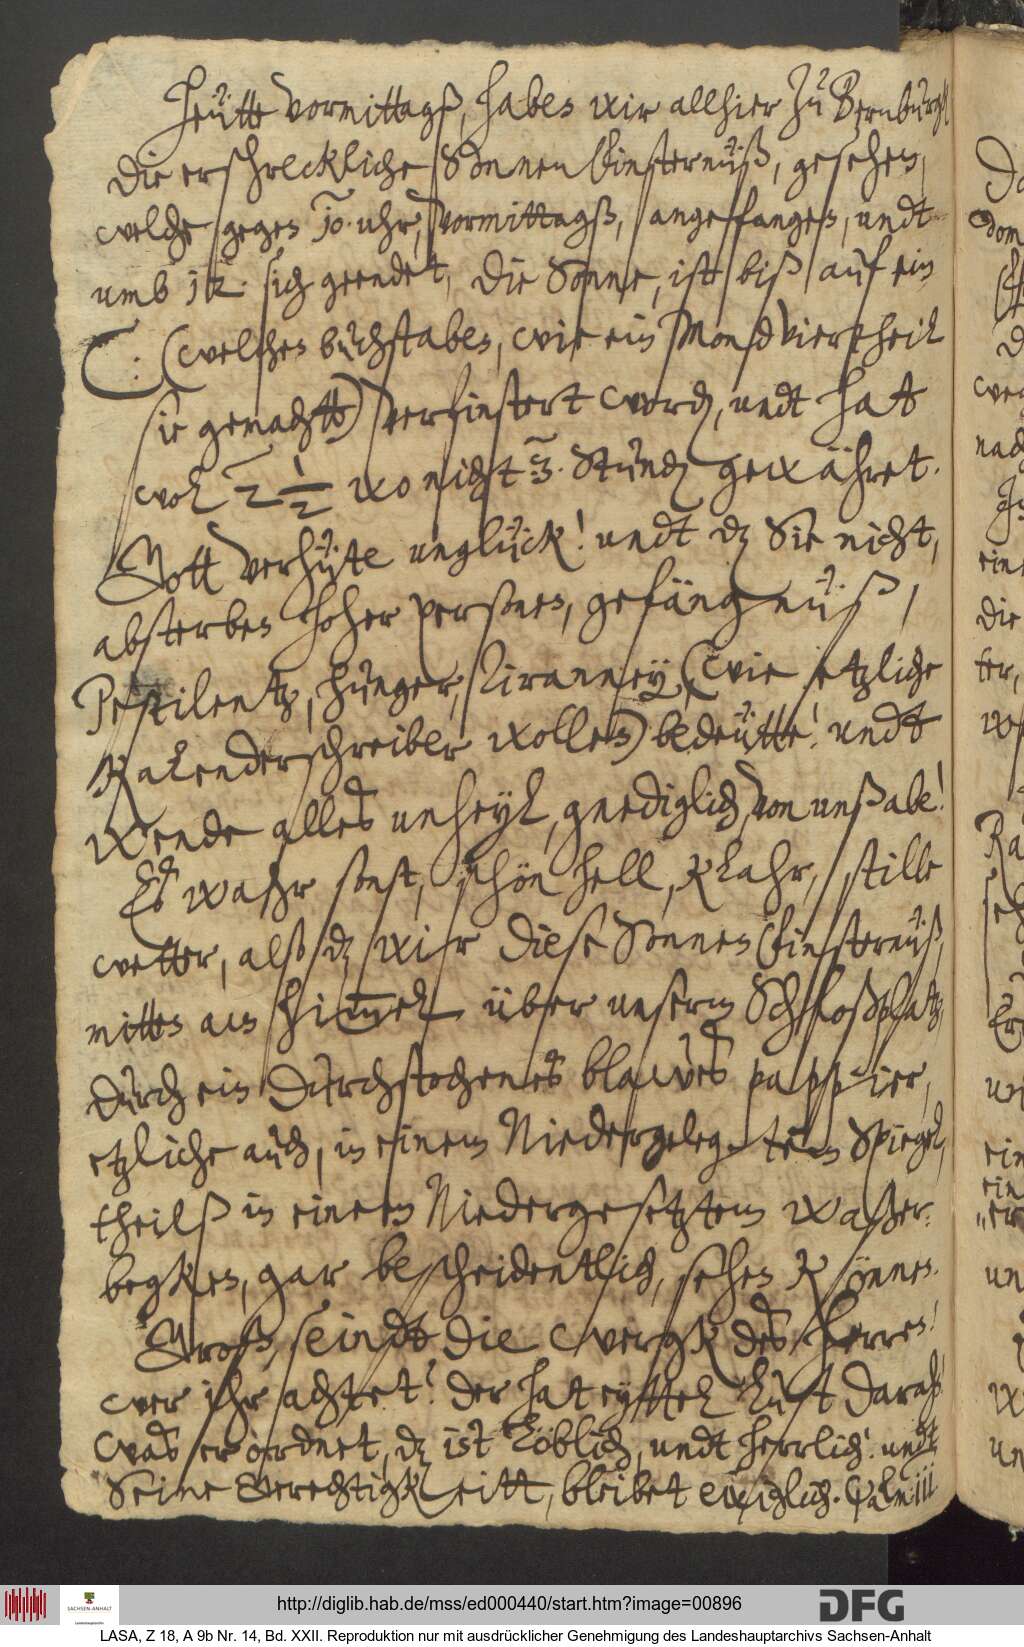 Heütte vormittagß, haben wir allhier zu Bernburgk
die erschreckliche Sonnenfinsternüß, gesehen,
welche gegen 10. uhr, vormittagß, angefangen, undt
umb 12. sich geendet, die Sonne, ist biß auf ein
C: (welchen buchstaben, wie ein Mondviertheil
sie gemacht) verfinstert word(en), undt hat
wol 2 1/2 wo nicht 3. Stund(en) gewähret.
Gott verhüte unglück! undt d(aß) Sie nicht,
absterben hoher personen, gefängnüß,
Pestilentz, hunger, Tiranney, (wie etzliche
Kalenderschreiber wollen) bedeütte! undt
wende alles unheyl, gnediglich, von unß abe!
Es wahr sonst, schön hell, klahr, stille
wetter, alß d(aß) wir diese Sonnenfinsternüß,
mitten am himmel über unserm Schloßplatz
durch ein durchstochenes blawes pappier,
etzliche auch, in einem Niedergelegtem Spiegel,
theilß in einem Niedergesetztem waßer-
begken, gar bescheidentlich, sehen können.
Groß seindt die wergk des Herren!
wer ihr achtet! der hat eyttel lust daran
was er ordnet, d(aß) ist löblich, undt herrlich! undt
Seine Gerechtigkeitt, bleibet ewiglich. Psalm: iii
http://diglib.hab.de/mss/ed000440/start.htm?image=00896
SACHSEN-ANHALT
DFG
LASA, Z 18, A 9b Nr. 14, Bd. XXII. Reproduktion nur mit ausdrücklicher Genehmigung des Landeshauptarchivs Sachsen-Anhalt